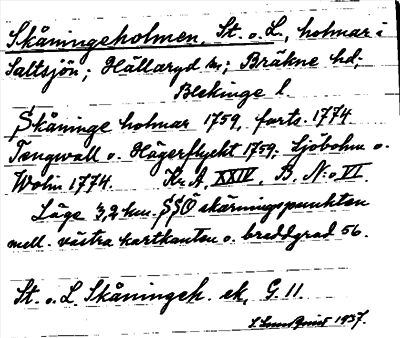 Skåningeholmen, St. o. L., holmar i
Saltsjön; Hällaryd sn; Bräkne hd;
Blekinge l.
Skåninge holmar 1759, forts. 1774.
Tengwall o. Hägerflycht 1759; Sjöbohm o.
Wohn 1774. Kr. A, XXIV, B, N:o VI.
Läge 3,2 km. SSÖ skärningspunkten
mell. västra kartkanten o. breddgrad 56.
St. o. L. Skåningeh. ek, G 11.
S. Lundquist 1937.